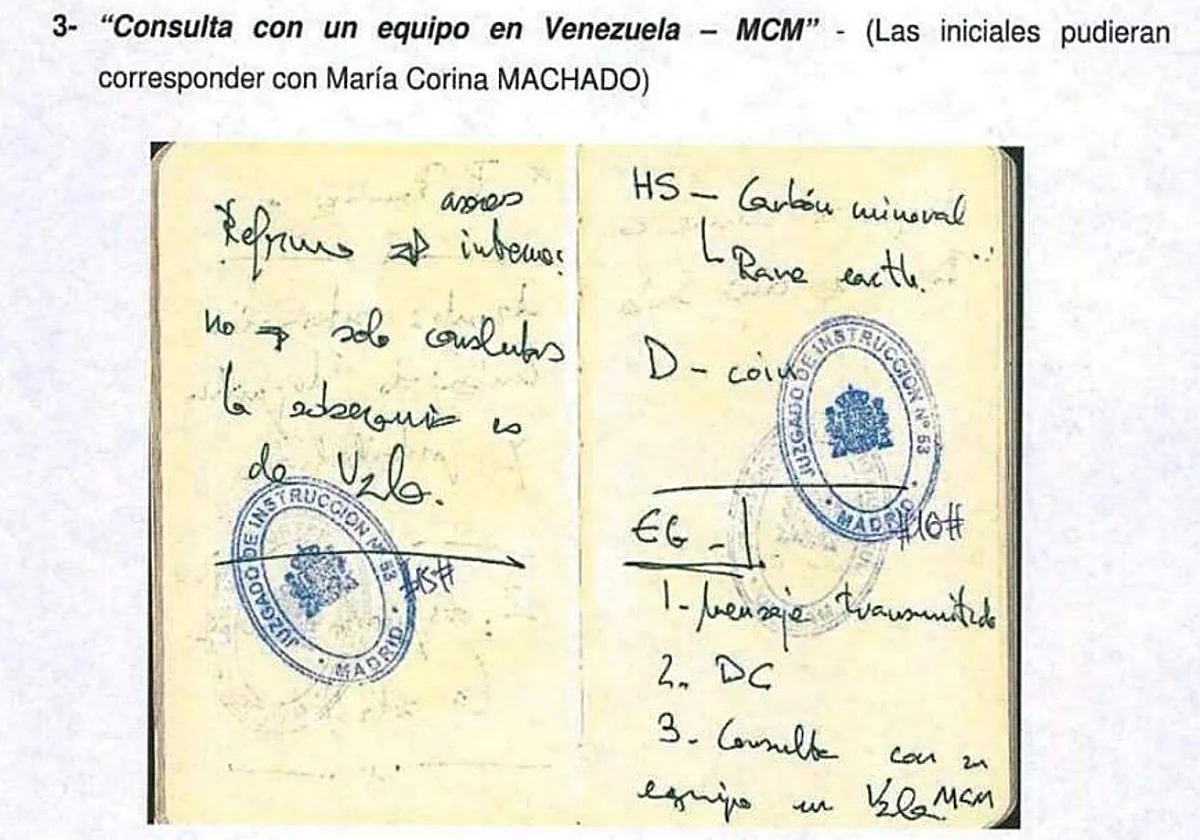 3- “Consulta con un equipo en Venezuela – MCM” - (Las iniciales pudieran
corresponder con María Corina MACHADO)
no → solo consultas
la
de Vzla.
JUZGADO DE INSTRUCCION Nº 53
MADRID
#15#
HS – Carbón mineral
Rare earth.
D - coin
JUZGADO DE INSTRUCCION Nº 53
MADRID
#16#
EG -
1- mensaje transmitido
2. DC
3. Consulta con un
equipo en Vzla MCM